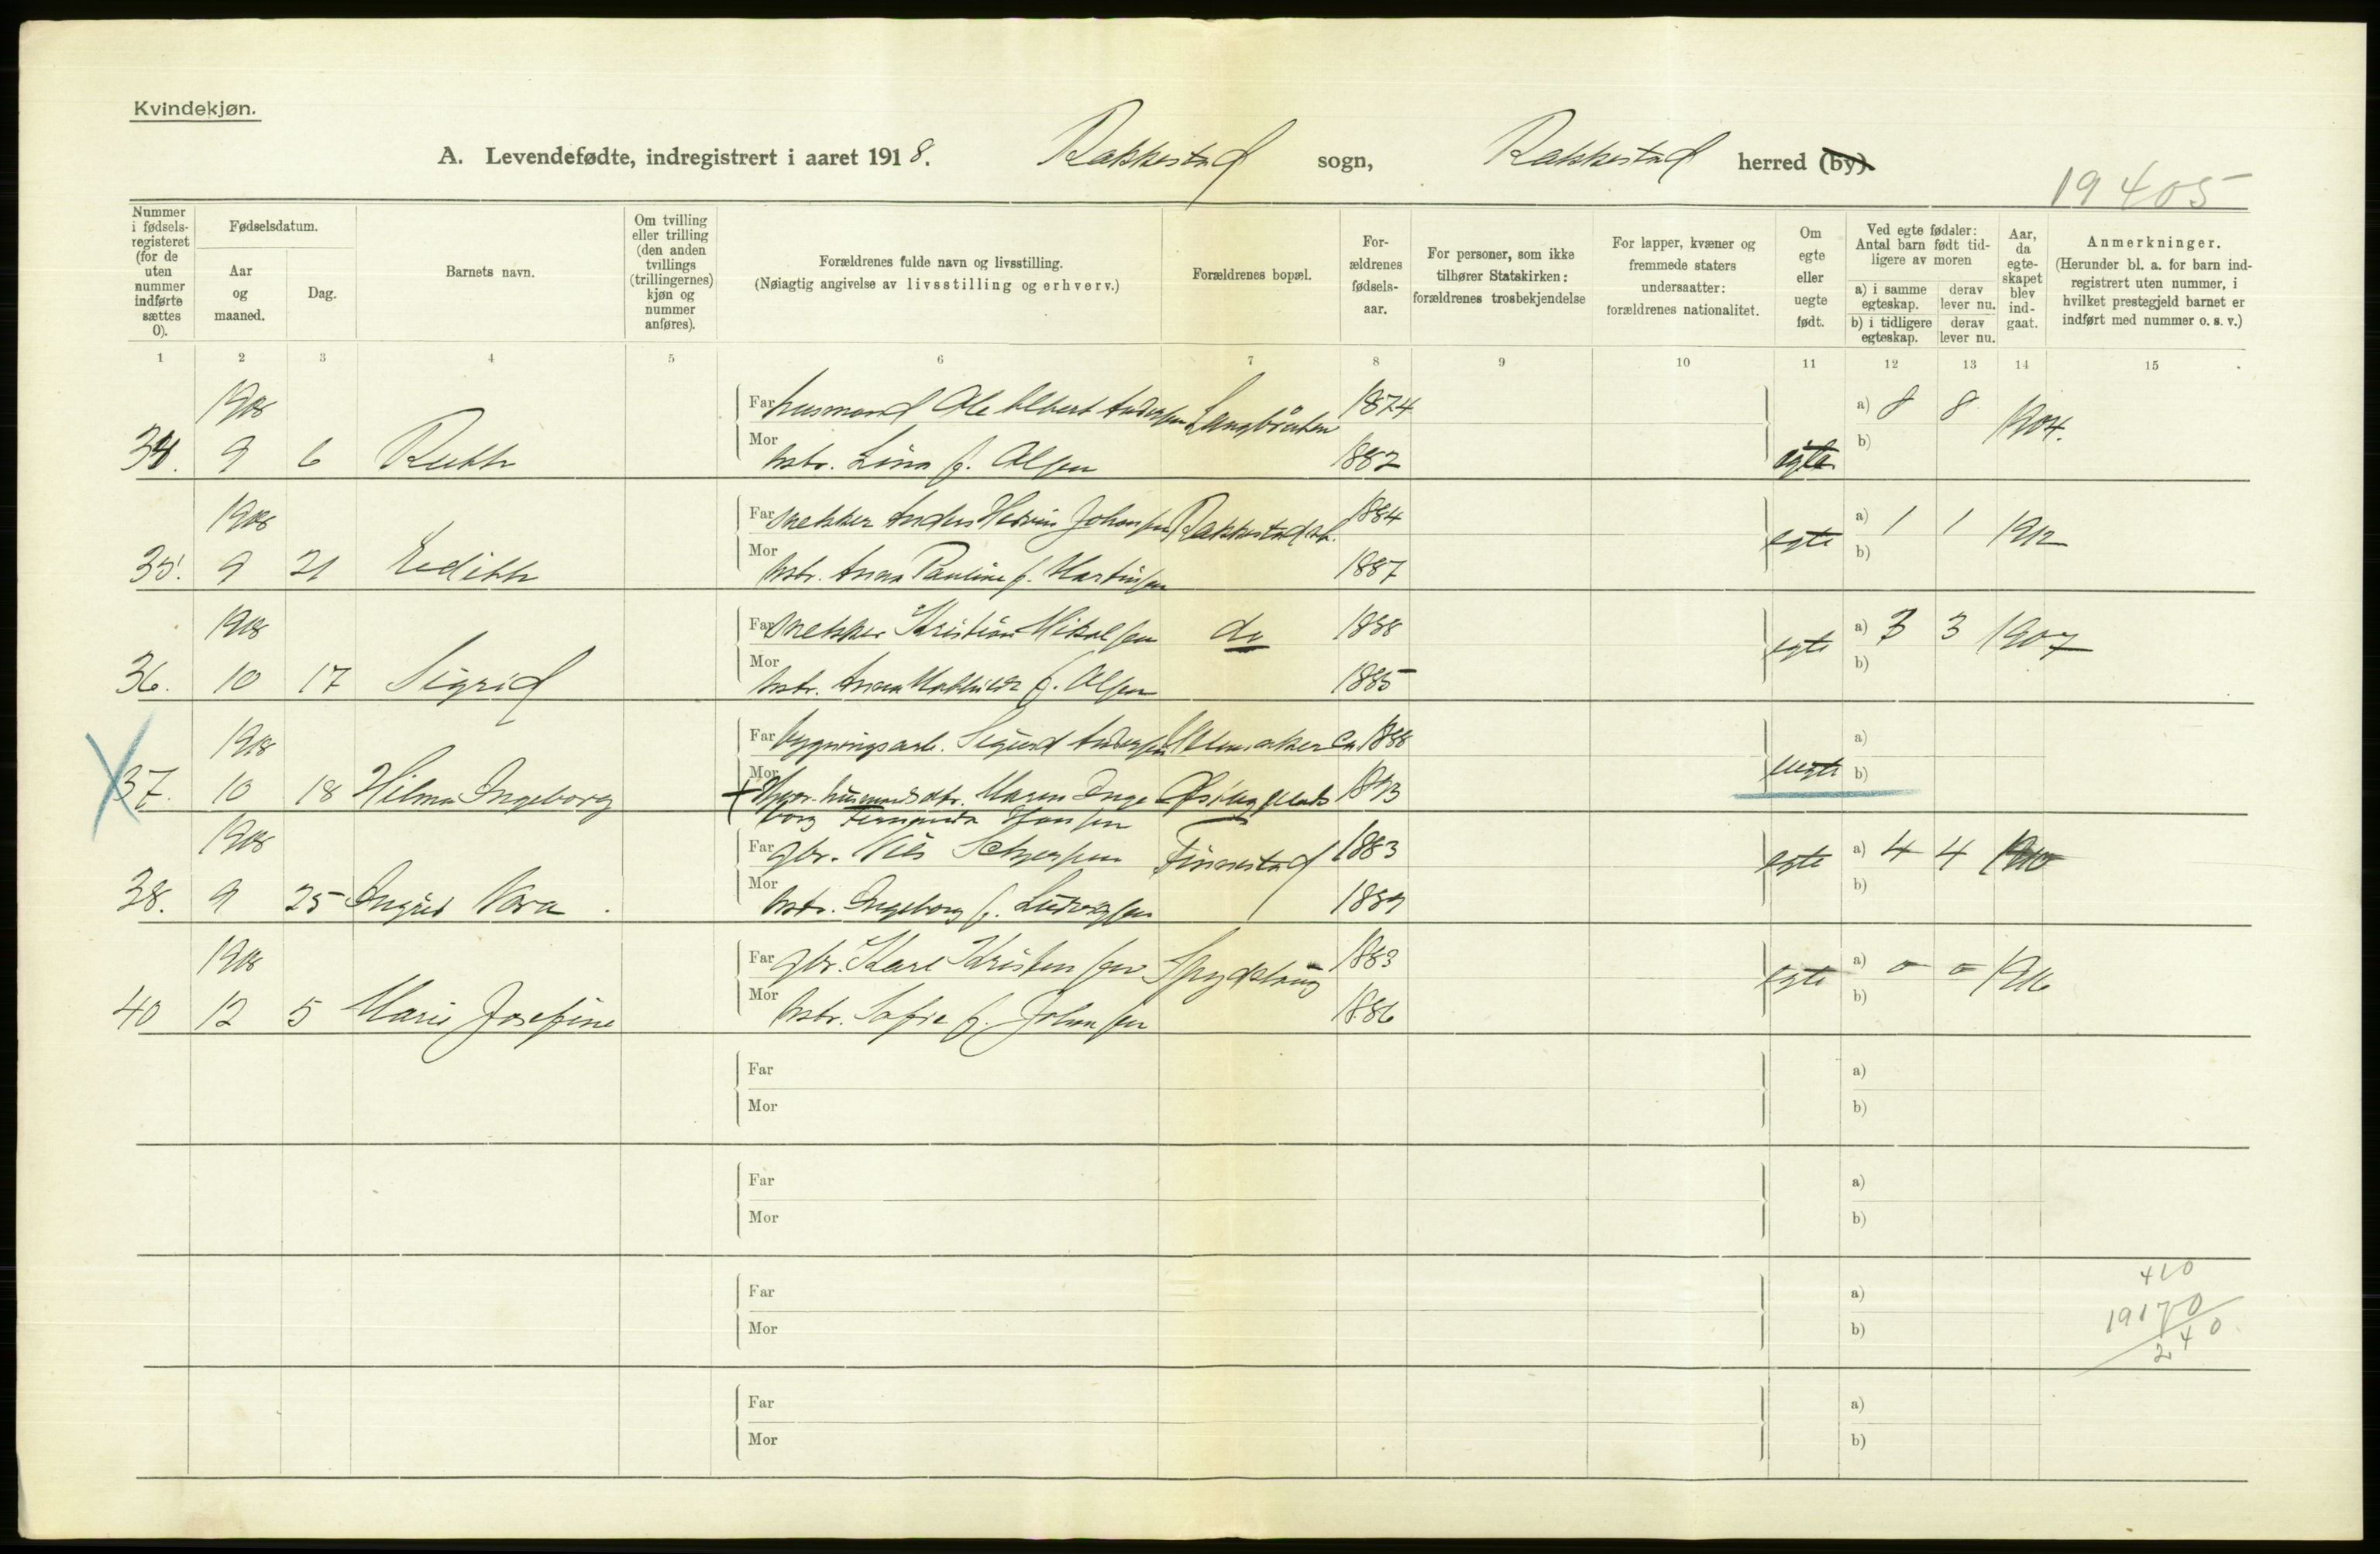 Kvindekjøn.
A. Levendefødte, indregistrert i aaret 1918. Rakkestad sogn, Rakkestad herred (by).
19405
Nummer i fødselsregisteret (for de uten nummer indførte sættes 0).
Fødselsdatum.
Aar og maaned.
Dag.
Barnets navn.
Om tvilling eller trilling (den anden tvillings (trillingernes) kjøn og nummer anføres).
Forældrenes fulde navn og livsstilling.
(Nøiagtig angivelse av livsstilling og erhverv.)
Forældrenes bopæl.
Forældrenes fødselsaar.
For personer, som ikke tilhører Statskirken: forældrenes trosbekjendelse
For lapper, kvæner og fremmede staters undersaatter: forældrenes nationalitet.
Om egte eller uegte født.
Ved egte fødsler: Antal barn født tidligere av moren
a) i samme egteskap. derav lever nu.
b) i tidligere egteskap. derav lever nu.
Aar, da egteskapet blev indgaat.
Anmerkninger.
(Herunder bl. a. for barn indregistrert uten nummer, i hvilket prestegjeld barnet er indført med nummer o. s. v.)
1 2 3 4 5 6 7 8 9 10 11 12 13 14 15
1918 Far husmand Ole Albert Andersen Langbråten 1874 a) 8 8 1904.
34. 9 6 Ruth Mor hstr. Lina f. Olsen 1882 egte b)
1918 Far Anders Johansen Rakkestad st. 1884 egte a) 1 1 1912
35. 9 21 Edith Mor hstr. Anna Pauline f. Martinsen 1887 b)
1918 Far Kristian Mikalsen do 1888 egte a) 3 3 1907
36. 10 17 Sigrid Mor hstr. Anna Mathilde f. Olsen 1885 b)
1918 Far bygningsarb. Sigurd Andersen ca 1888 a)
37. 10 18 Hilma Ingeborg Mor husmandsdtr. Maren Inge- 1893 uegte b)
borg Fernanda Hansen
1918 Far gbr. Nils Finnestad 1883 egte a) 4 4 1910
38. 9 25 Ingrid Nora Mor hstr. Ingeborg f. Ludvigsen 1889 b)
1918 Far gbr. Karl Kristensen 1883 egte a) 0 0 1916
40 12 5 Marie Josefine Mor hstr. Sofie f. Johansen 1886 b)
Far a)
Mor b)
Far a)
Mor b)
Far a) 420
Mor b) 19170
240
Far a)
Mor b)